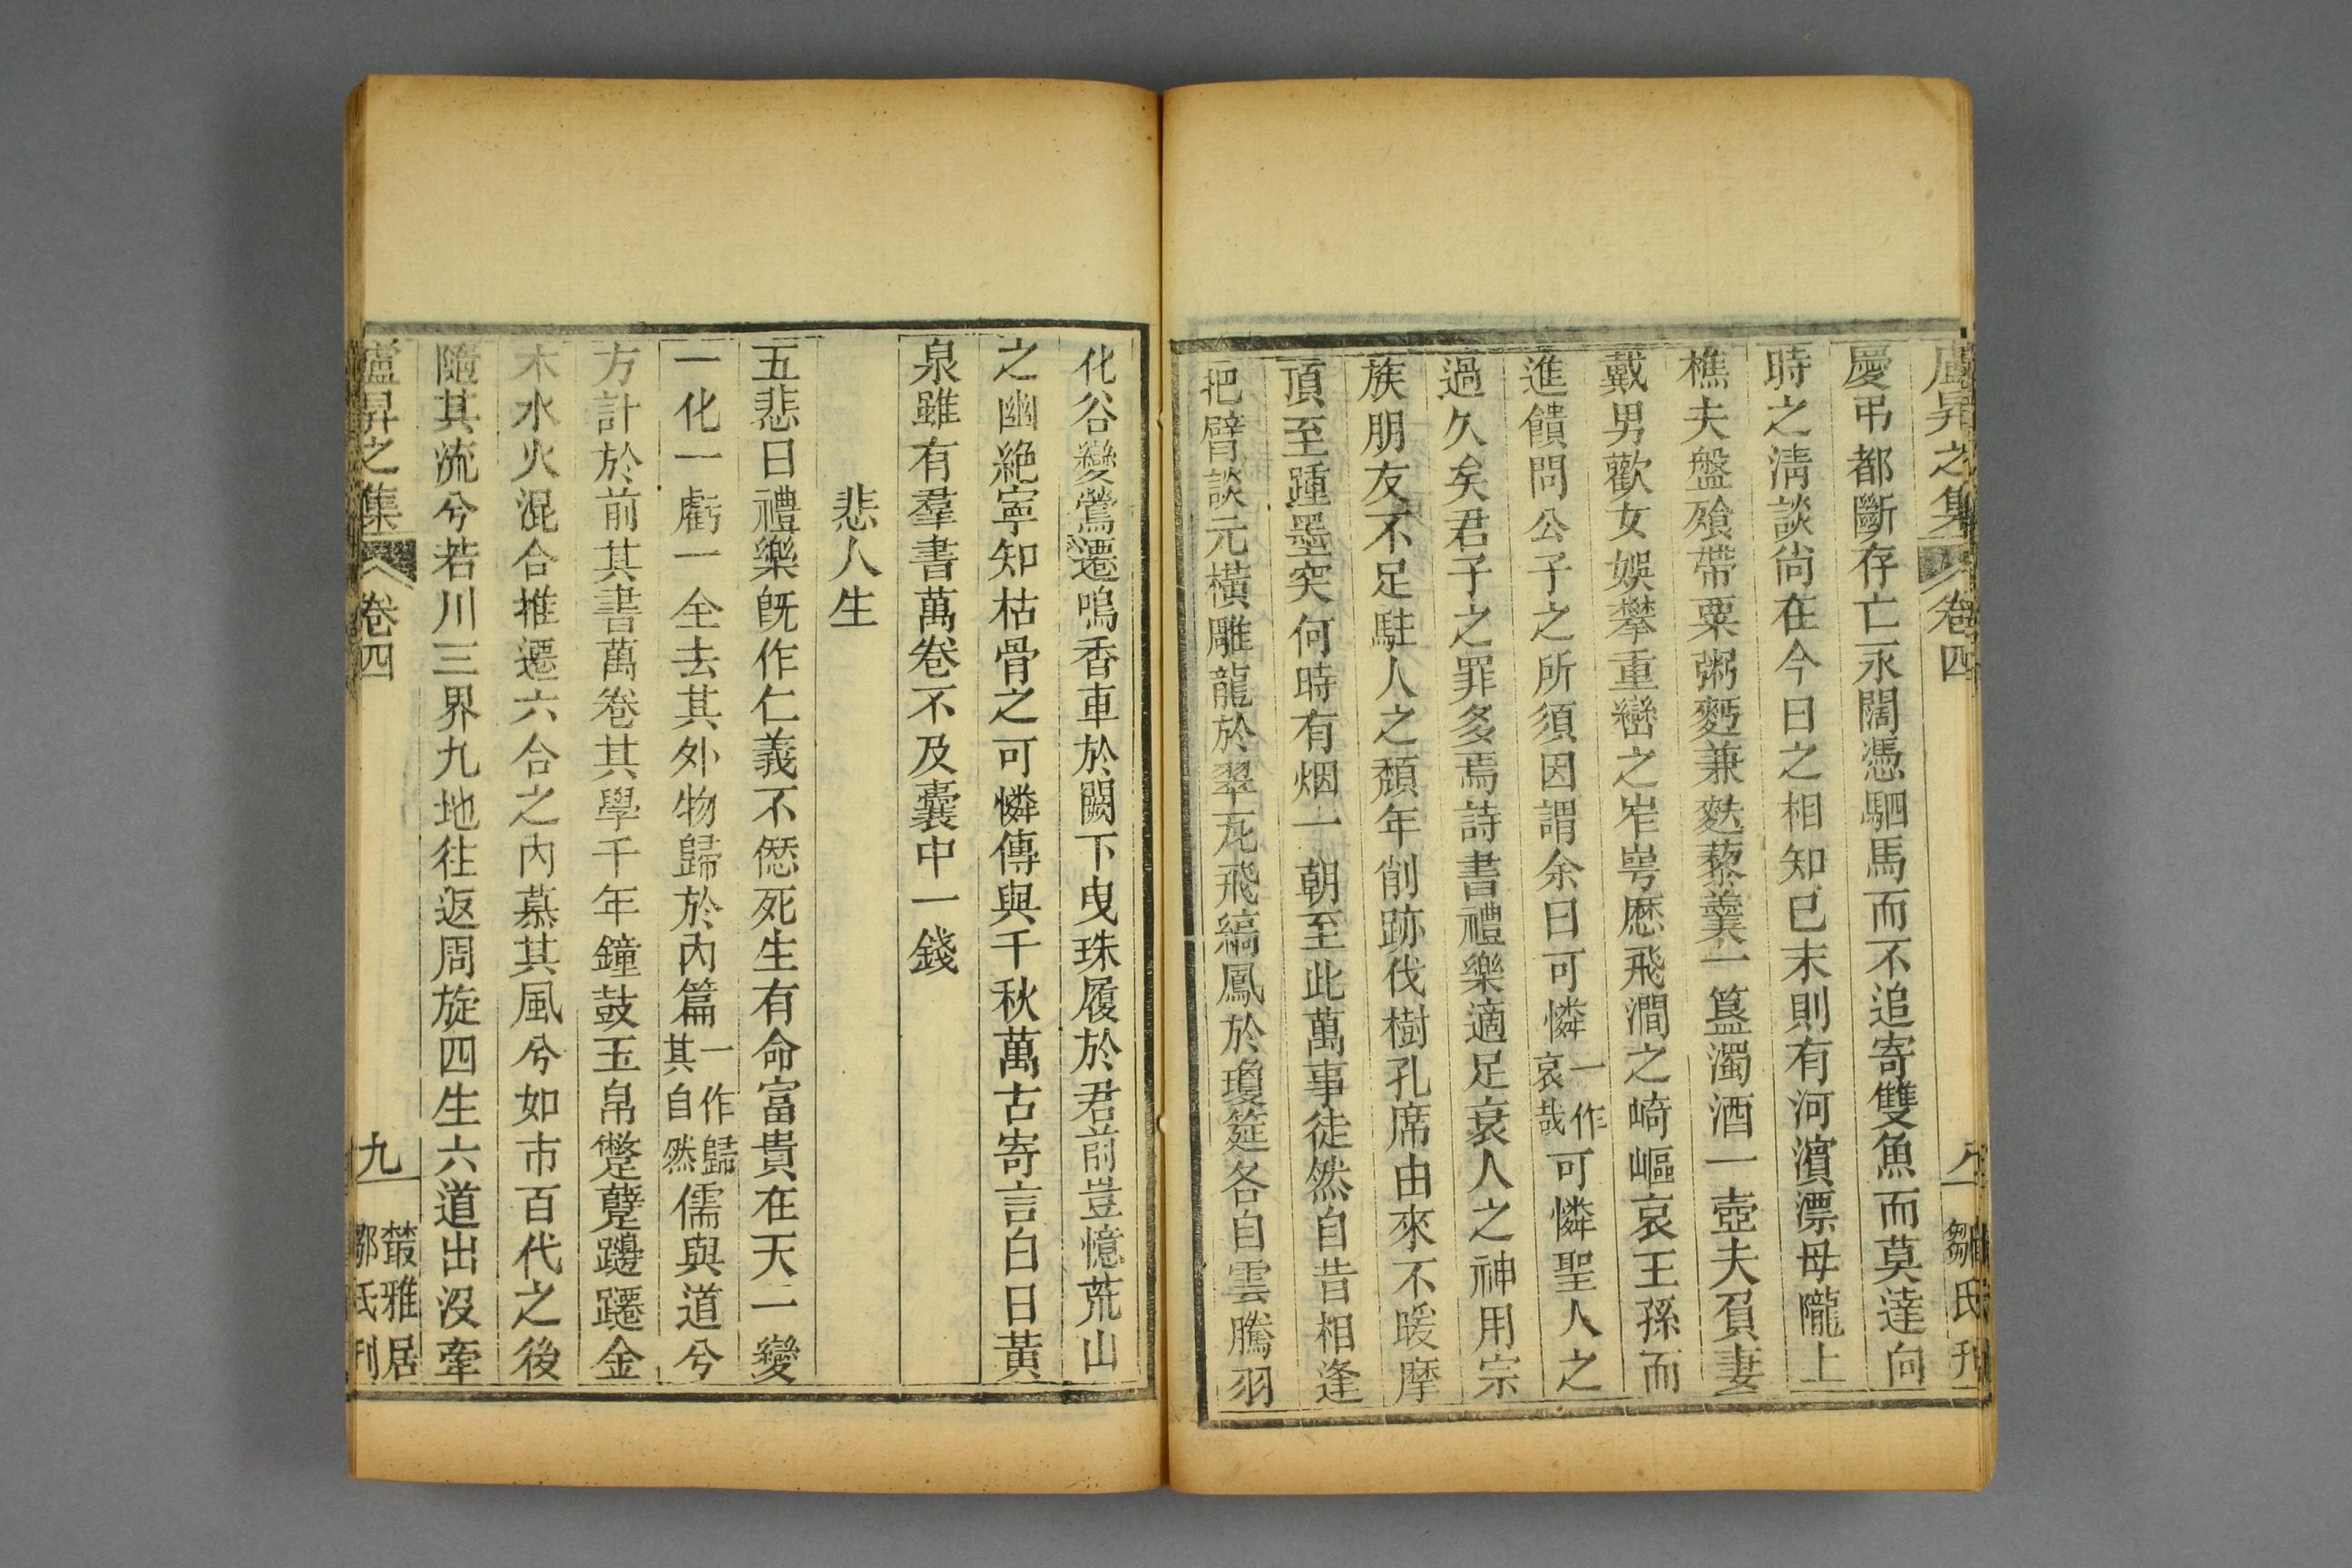 盧昇之集 卷四 八 鄒氏刊
慶弔都斷存亡永闊憑駟馬而不追寄雙魚而莫達向
時之清談尙在今日之相知已末則有河濵漂母隴上
樵夫盤飱帶粟粥麫兼麩藜羹一簋濁酒一壺夫負妻
戴男歡女娛攀重巒之岝崿歴飛澗之崎嶇哀王孫而
進饋問公子之所須因謂余曰可憐一作哀哉可憐聖人之
過久矣君子之罪多焉詩書禮樂適足衰人之神用宗
族朋友不足駐人之頽年削跡伐樹孔席由來不暖摩
頂至踵墨突何時有烟一朝至此萬事徒然自昔相逢
把臂談元横雕龍於翠瓦飛縞鳳於瓊筵各自雲騰羽
化谷變鶯遷鳴香車於闕下曳珠履於君前豈憶荒山
之幽絶寧知枯骨之可憐傳與千秋萬古寄言白日黄
泉雖有羣書萬卷不及囊中一錢
悲人生
五悲曰禮樂旣作仁義不愆死生有命富貴在天一變
一化一虧一全去其外物歸於内篇一作歸其自然儒與道兮
方計於前其書萬卷其學千年鐘鼓玉帛蹩躠躚金
木水火混合推遷六合之内慕其風兮如市百代之後
隨其流兮若川三界九地往返周旋四生六道出没牽
盧昇之集 卷四 九 叢雅居鄒氏刊